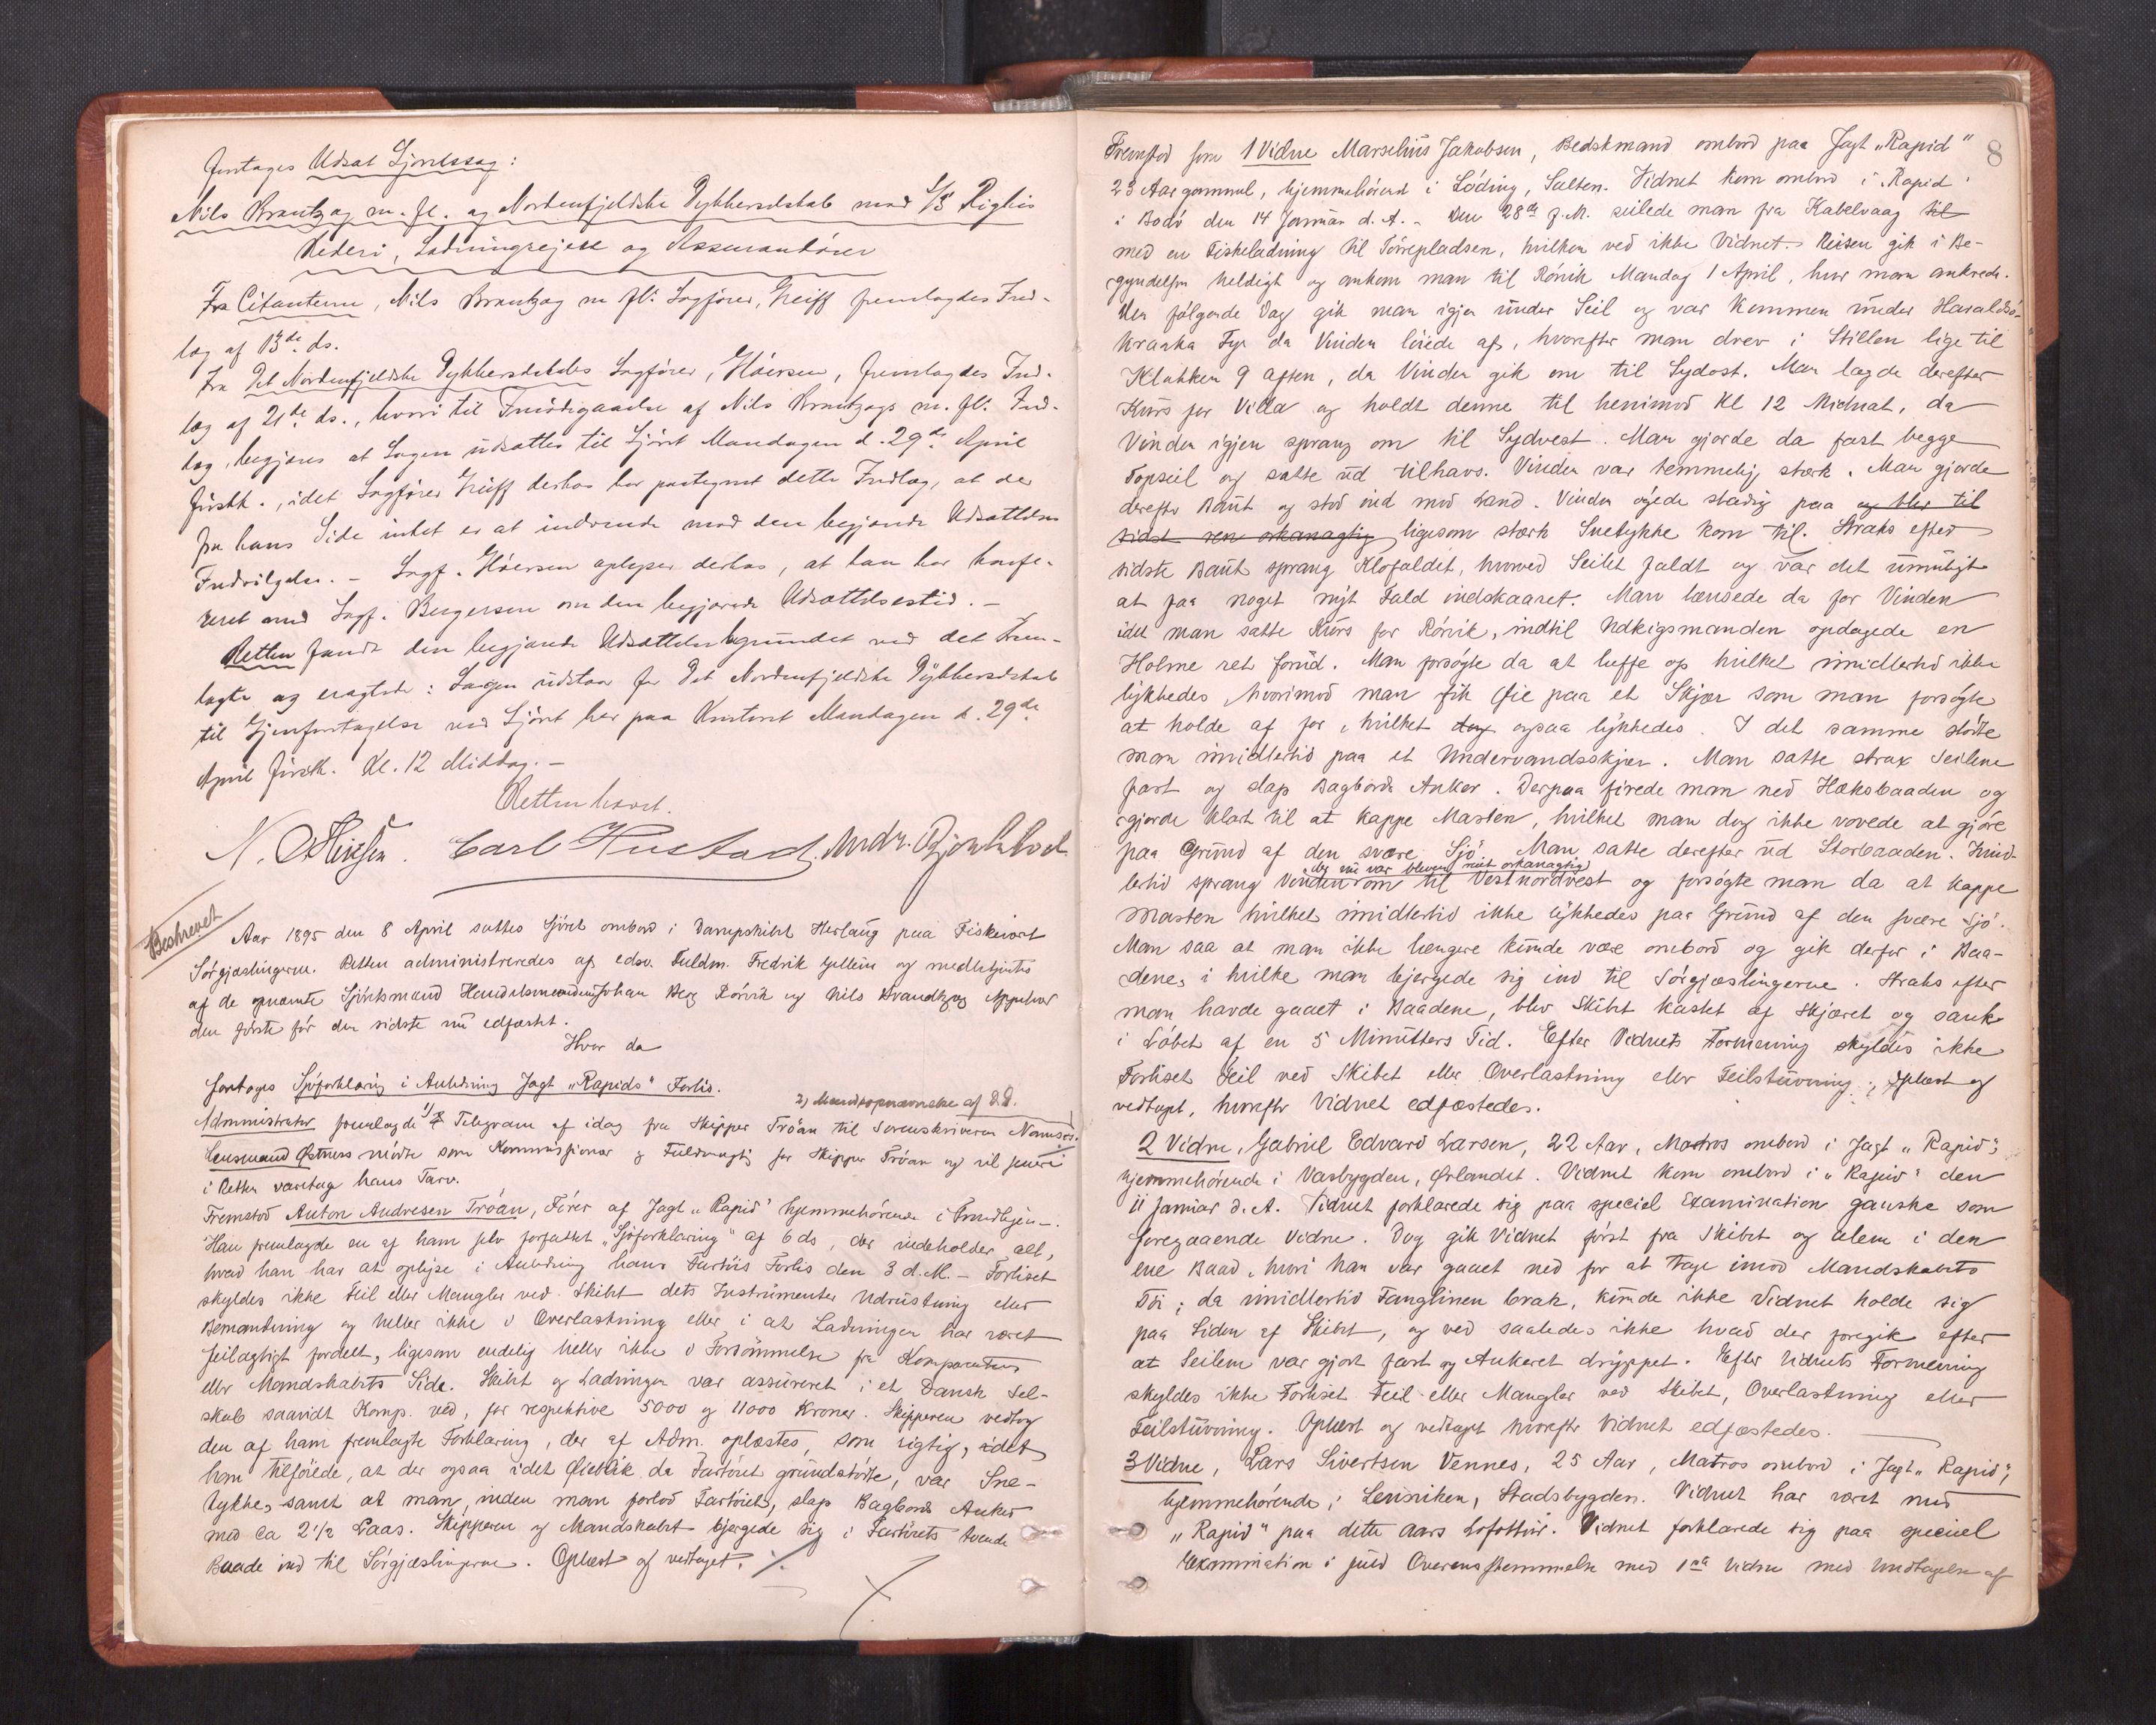 foretages Udsat Sjøretssag:
Nils Brantzæg m. fl. og Nordenfjeldske Dykkerselskab mod S/S Riglis
Rederi, Ladningsejere og Assurandører
Fra Citanterne, Nils Brantzæg m fl. Sagfører, Greiff fremlagdes Ind-
læg af 13de ds.
Fra Det Nordenfjeldske Dykkerselskabs Sagfører, Høiersen, fremlagdes Ind-
læg af 21de ds., hvori til Imødegaaelse af Nils Brantzægs m. fl. Ind-
læg, begjæres at Sagen udsættes til Sjøret Mandagen d. 29de April
førstk., idet Sagfører Greiff derhos har paategnet dette Indlæg, at der
fra hans Side intet er at indvende mod den begjærede Udsættelses
Indvilgelse. - Sagf. Høiersen oplyser derhos, at han har konfe-
reret med Sagf. Bergersen om den begjærede Udsættelsestid. -
Retten fandt den begjærede Udsættelse begrundet ved det Frem-
lagte og eragtede: Sagen udstaar for Det Nordenfjeldske Dykkerselskab
til Gjenforetagelse ved Sjøret her paa Kontoret Mandagen d. 29de
April førstk. Kl. 12 Middag. -
Retten hævet.
Carl Hustad, Andr.
Beskrevet
Aar 1895 den 8 April sattes Sjøret ombord i Dampskibet Herlaug paa Fiskeværet
Sørgjæslingerne. Retten administreredes af edsv. Fuldm. Fredrik Gellein og medbetjentes
af de opnævnte Sjøretsmænd Handelsmændene Johan Berg Rørvik og Nils Brandtzæg Appelvær
den første før den sidste nu edfæstet.
Hvor da
foretoges Sjøforklaring i Anledning Jagt „Rapids“ Forlis.
2) Mandsopnævnelse af D.D.
Administrator fremlagde 1) Telegram af idag fra Skipper Tróan til Sorenskriveren Namsos.
Lensmand Østnes mødte som Kommissionær og Fuldmægtig for Skipper Tróan og vil her
i Retten varetage hans Tarv.
Fremstod Anton Andresen Tróan, Fører af Jagt „Rapid“ hjemmehørende i Trondhjem.
Han fremlagde en af ham selv forfattet „Sjøforklaring“ af 6 ds, der indeholder alt,
hvad han har at oplyse i Anledning hans Fartøis Forlis den 3 d.M. - Forliset
skyldes ikke Feil eller Mangler ved Skibet dets Instrumenter Udrustning eller
Bemanding og heller ikke i Overlastning eller i at Ladningen har været
feilagtigt fordelt, ligesom endelig heller ikke i Forsømmelse fra Komparentens
eller Mandskabets Side. Skibet og Ladningen var assureret i et Dansk Sel-
skab saavidt Komp. ved, for respektive 5000 og 11000 Kroner. Skipperen vedtog
den af ham fremlagte Forklaring, der af Adm. oplæstes, som rigtig, idet
han tilføiede, at der ogsaa idet Øieblik da Fartøiet grundstødte, var Sne-
tykke, samt at man, inden man forlod Fartøiet, slap Bagbords Anker
med ca 2 1/2 Laas. Skipperen og Mandskabet bjergede sig i Fartøiets tvende
Baade ind til Sørgjæslingerne. Oplæst og vedtaget. ./.
8
Fremstod som 1 Vidne Marselius Jakobsen, Bedstmand ombord paa Jagt „Rapid“
23 Aar gammel, hjemmehørend i Løding, Salten. Vidnet kom ombord i „Rapid“
i Bodø den 14 Januar d. A. - Den 28de f.M. seilede man fra Kabelvaag til
med en Fiskeladning til Tørrepladsen, hvilken ved ikke Vidnet. Reisen gik i Be-
gyndelsen heldigt og ankom man til Rørvik Mandag 1 April, hvor man ankrede.
Den følgende Dag gik man igjen under Seil og var kommen under Haraldsø-
kraaka Fyr da Vinden løiede af, hvorefter man drev i Stillen lige til
Klokken 9 aften, da Vinden gik om til Sydost. Man lagde derefter
Kurs for Villa og holdt denne til henimod Kl 12 Midnat, da
Vinden igjen sprang om til Sydvest. Man gjorde da fast begge
Topseil og satte ud tilhavs. Vinden var temmelig stærk. Man gjorde
derefter Baut og stod ind mod Land. Vinden øgede stadig paa og blev til
sidst ren orkanagtig ligesom stærk Snetykke kom til. Straks efter
sidste Baut sprang Klofaldet, hvorved Seilet faldt og var det umuligt
at faa noget nyt Fald indskaaret. Man lænsede da for Vinden
idet man satte Kurs for Rørvik, indtil Udkigsmanden opdagede en
Holme ret forud. Man forsøgte da at luffe op hvilket imidlertid ikke
lykkedes, hvorimod man fik Øie paa et Skjær som man forsøgte
at holde af for, hvilket dog ogsaa lykkedes. I det samme stødte
man imidlertid paa et Undervandsskjær. Man satte strax Seilene
fast og slap Bagbords Anker. Derpaa firede man ned Hæksbaaden og
gjorde klart til at kappe Masten, hvilket man dog ikke vovede at gjøre
paa Grund af den svære Sjø. Man satte derefter ud Storbaaden. Imid-
der nu var bleven reent orkanagtig
lertid sprang Vinden om til Vestnordvest og forsøgte man da at kappe
Masten hvilket imidlertid ikke lykkedes paa Grund af den svære Sjø.
Man saa at man ikke længere kunde være ombord og gik derfor i Baa-
dene, i hvilke man bjergede sig ind til Sørgjæslingerne. Straks efter
man havde gaaet i Baadene, blev Skibet kastet af Skjæret og sank
i Løbet af en 5 Minutters Tid. Efter Vidnets Formening skyldes ikke
Forliset Feil ved Skibet eller Overlastning eller Feilstuvning. Oplæst og
vedtaget, hvorefter Vidnet edfæstedes.
2 Vidne, Gabriel Edvard Larsen, 22 Aar, Matros ombord i Jagt „Rapid“,
hjemmehørende i Vasbygden, Ørlandet. Vidnet kom ombord i „Rapid“ den
11 Januar d. A. Vidnet forklarede sig paa speciel Examination ganske som
foregaaende Vidne. Dog gik Vidnet først fra Skibet og alene i den
ene Baad, hvori han var gaaet ned for at tage imod Mandskabets
Tøi; da imidlertid Fanglinen brak, kunde ikke Vidnet holde sig
paa Siden af Skibet, og ved saaledes ikke hvad der foregik efter
at Seilene var gjort fast og Ankeret droppet. Efter Vidnets Formening
skyldes ikke Forliset Feil eller Mangler ved Skibet, Overlastning eller
Feilstuvning. Oplæst og vedtaget hvorefter Vidnet edfæstedes.
3 Vidne, Lars Sivertsen Vennes, 25 Aar, Matros ombord i Jagt „Rapid“,
hjemmehørende i Lensviken, Stadsbygden. Vidnet har været med
„Rapid“ paa dette Aars Lofottur. Vidnet forklarede sig paa speciel
Examination i fuld Overensstemmelse med 1ste Vidne med Undtagelse af